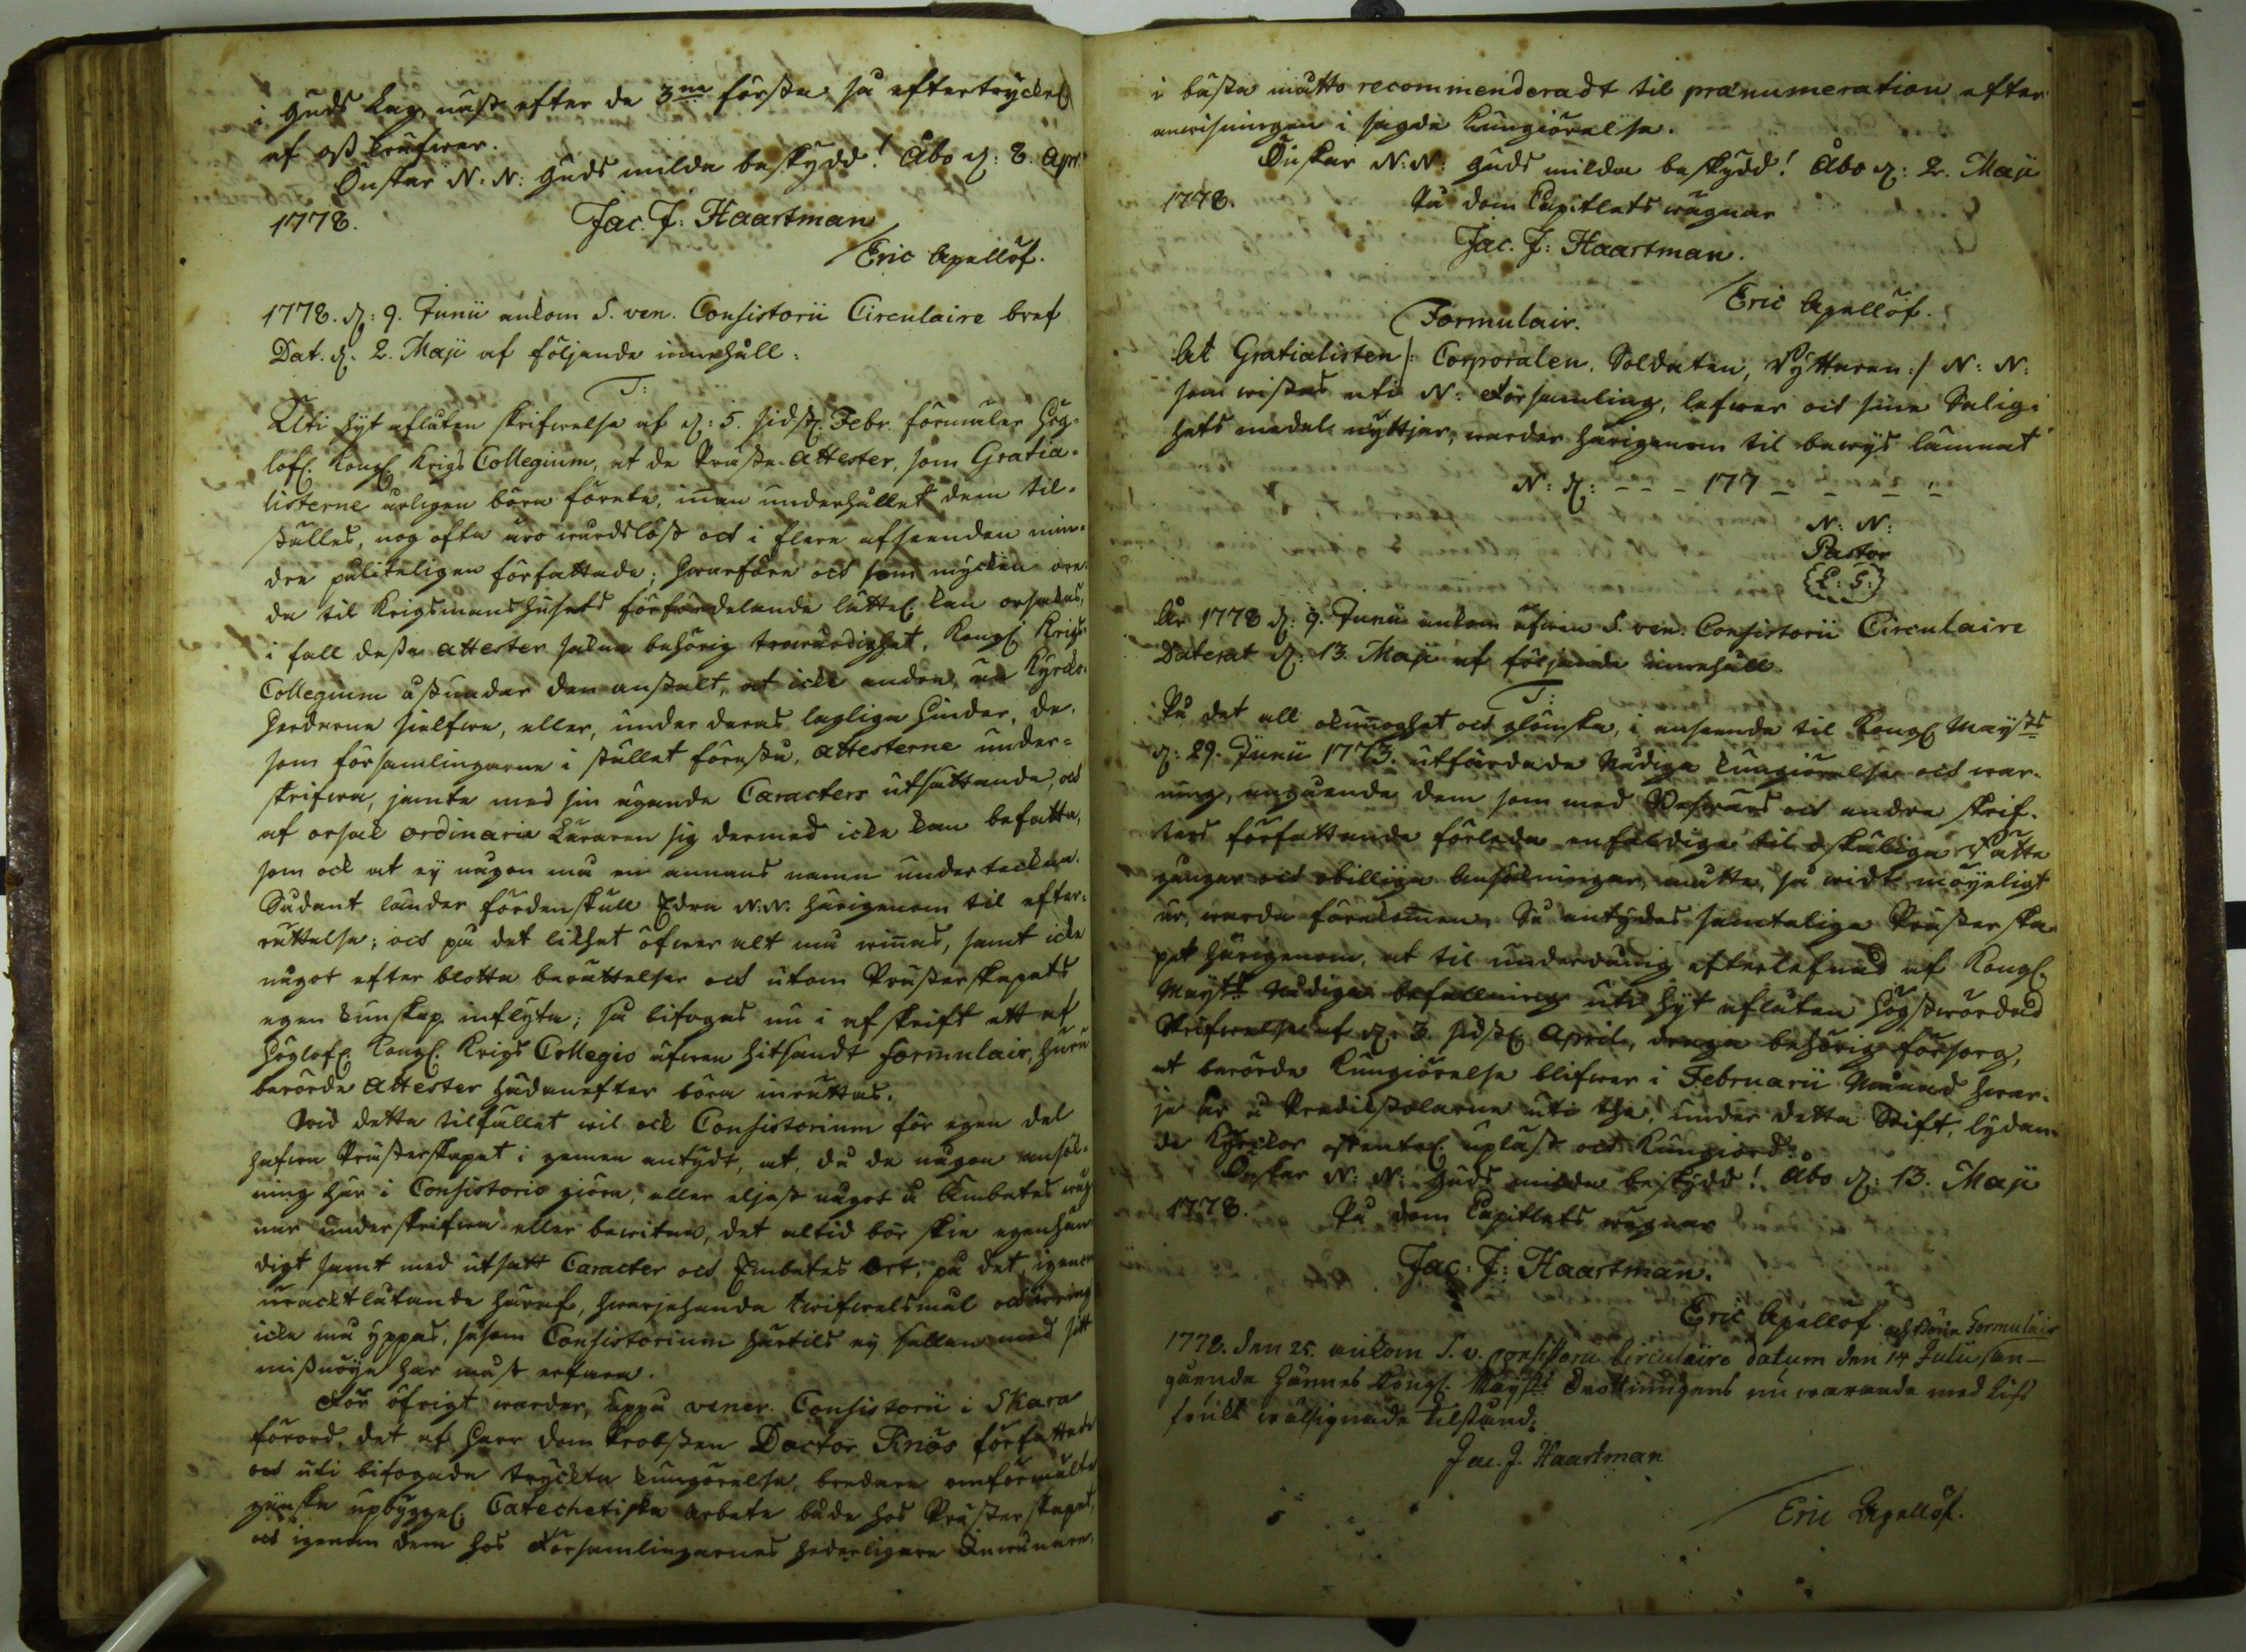 i Guds Lag, näst efter de 3ne första, så eftertryckel.
af oss kräfwer.
Önskar N: N: Guds milda beskydd! Åbo d: 8. Apr.
1778.
Jac. J: Haartman
/Eric Apellöf.
1778. d: 9. Junii ankom S. ven. Consistorii Circulaire bref
Dat. d. 2. Maji af följande innehåll:
T:
Uti hyt aflåten skrifwelse af d: 5. sidstl. Febr. förmäler Hög-
lofl. Kongl. Krigs Collegium, at de Präste-Attester, som Gratia-
listerne årligen böra förete, innan underhållet dem til-
ställes, nog ofta äro wårdslöst och i flere afseenden min-
dre påliteligen författade; hwarföre och som mycken ore-
da til Krigsmanshusets förfördelande lättel. kan orsakas,
i fall dessa attester sakna behörig trowärdighet, Kongl. Krigs
Collegium åstundar den anstalt, at icke andre, än Kyrko-
herdarne sielfwe, eller, under deras lagliga hinder, de,
som församlingarne i stället förestå, attesterne under-
skrifwa, jemte med sin ägande Caracters utsättande, och
af orsak ordinarie Läraren sig dermed icke kan befatta,
som ock at ej någon må en annans namn underteckna.
Sådant länder fördenskull Edra N: N: härigenom til efter-
rättelse; och på det likhet öfwer alt må winnas, samt icke
något efter blotta berättelser och utom Prästerskapets
egen kunskap inflyta; så bifogas nu i afskrift ett af
Höglofl. Kongl. Krigs Collegio äfwen hitsändt formulair, huru
berörde Attester hädanefter böra inrättas.
Wid detta tilfället wil ock Consistorium för egen del
hafwa Prästerskapet i gemen antydt, at, då de någon ansök-
ning här i Consistorio giöra, eller eljest något å Ämbetes wäg-
nar underskrifwa eller bewitna, det altid bör skie egenhän-
digt samt med utsatt Caracter och Embetes Ort, på det, igenom
uracktlåtande häraf, hwarjehanda twifwelsmål och irring
icke må yppas, såsom Consistorium härtils ej sällan med sitt
missnöye har måst erfara.
För öfrigt warder, uppå vener. Consistorii i Skara
förord, det af Herr Dom Probsten Doctor Knös författade
och uti bifogade tryckta kungörelse, bredare omförmälte
ganska upbyggel. Catechetiska Arbete både hos Prästerskapet,
och igenom dem hos Församlingarnes hederligare Inwånare,
i bästa måtto recommenderadt til prænumeration efter
anwisningen i sagde Kungiörelse.
Önskar N: N: Guds milda beskydd! Åbo d: 2. Maji
1778.
På Dom Capitlets wägnar
Jac. J: Haartman.
/Eric Apellöf.
Formulair.
At Gratialisten /: Corporalen, Soldaten, Ryttaren :/ N: N:
som wistas uti N: Församling, lefwer och sine Salig-
hets medel nyttjar, warder härigenom til bewis lämnat
N: d: - - - 177 - - - -
N: N:
Pastor
L: S:
År 1778 d: 9. Junii ankom äfwen S. ven. Consistorii Circulaire
Daterat d: 13. Maji af följande innehåll.
T:
På det all okunnoghet och glömska, i anseende til Kongl. Maysts
d: 29. Junii 1773. utfärdade Nådiga Kungiörelse och war-
ning, angående dem som med Beswärs och andra skrif-
ters författande förleda enfaldiga til oskäliga Rätte-
gångar och obilliga ansökningar, måtte, så widt möyeligt
är, warda förekommen, Så antydes samtelige Prästerska-
pet härigenom, at til underdånig efterlefnad af Kongl.
Maysts Nådiga befallning uti hyt aflåten Högstwördad
Skrifwelse af d: 3. sidstl. April, draga behörig försorg,
at berörde Kungiörelse blifwer i Februarii Månad hwar-
je år å Predikstolarne uti the, under detta Stift, lydan-
de Kyrkor ostentel. upläst och kungiord.
Önskar N: N: Guds milda beskydd! Åbo d: 13. Maji
1778.
På Dom Capitlets wägnar
Jac. J: Haartman.
Eric Apellöf.
och Böne Formulair
1778. den 25. ankom S. v. Consistorii Circulaire datum den 14 Julii an-
gående Hännes Kongl. Maysts Drottningens nu warande med Lifs
frukt wälsignade tilstånd.
Jac. J. Haartman
/ Eric Apellöf.